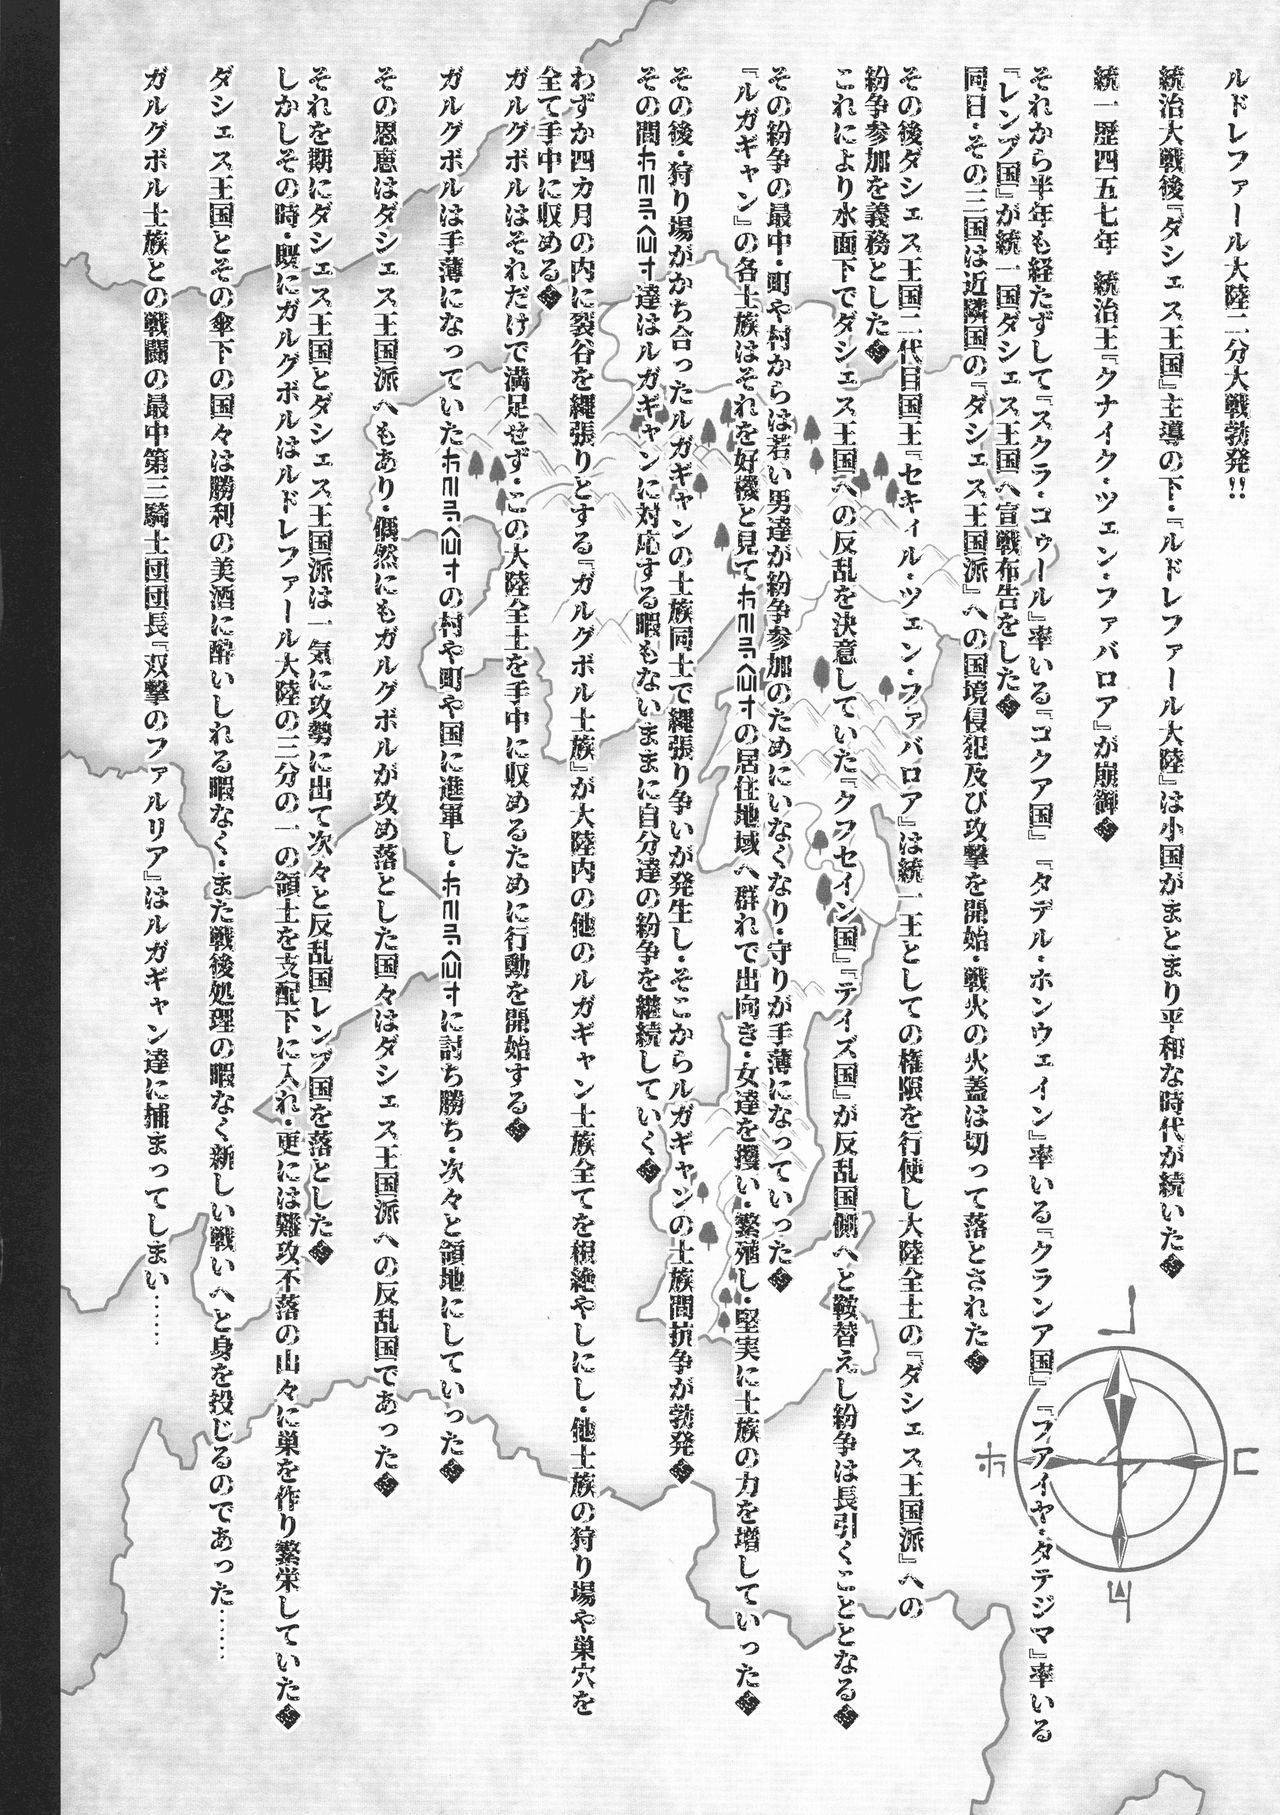 ルドレファール大陸二分大戦勃発!!
統治大戦後『ダシェス王国』主導の下・『ルドレファール大陸』は小国がまとまり平和な時代が続いた◆
統一歴四五七年 統治王『クナイク・ツェン・ファバロア』が崩御◆
それから半年も経たずして『スクラ・ゴゥール』率いる『コクア国』『タデル・ホンウェイン』率いる『クランア国』『フアイヤ・タテジマ』率いる
『レンブ国』が統一国ダシェス王国へ宣戦布告をした◆
同日・その三国は近隣国の『ダシェス王国派』への国境侵犯及び攻撃を開始・戦火の火蓋は切って落とされた◆
その後ダシェス王国二代目国王『セキィル・ツェン・ファバロア』は統一王としての権限を行使し大陸全土の『ダシェス王国派』への
紛争参加を義務とした◆
これにより水面下でダシェス王国への反乱を決意していた『クフセイン国』『テイズ国』が反乱国側へと鞍替えし紛争は長引くこととなる◆
その紛争の最中・町や村からは若い男達が紛争参加のためにいなくなり・守りが手薄になっていった◆
『ルガギャン』の各士族はそれを好機と見ての居住地域へ群れで出向き・女達を攫い・繁殖し・堅実に士族の力を増していった◆
その後・狩り場がかち合ったルガギャンの士族同士で縄張り争いが発生し・そこからルガギャンの士族間抗争が勃発◆
その間達はルガギャンに対応する暇もないままに自分達の紛争を継続していく◆
わずか四カ月の内に裂谷を縄張りとする『ガルグボル士族』が大陸内の他のルガギャン士族全てを根絶やしにし・他士族の狩り場や巣穴を
全て手中に収める◆
ガルグボルはそれだけで満足せず・この大陸全土を手中に収めるために行動を開始する◆
ガルグボルは手薄になっていたの村や町や国に進軍し・に討ち勝ち・次々と領地にしていった◆
その恩恵はダシェス王国派へもあり・偶然にもガルグボルが攻め落とした国々はダシェス王国派への反乱国であった◆
それを期にダシェス王国とダシェス王国派は一気に攻勢に出て次々と反乱国レンブ国を落とした◆
しかしその時・既にガルグボルはルドレファール大陸の三分の一の領土を支配下に入れ・更には難攻不落の山々に巣を作り繁栄していた◆
ダシェス王国とその傘下の国々は勝利の美酒に酔いしれる暇なく・また戦後処理の暇なく新しい戦いへと身を投じるのであった……
ガルグボル士族との戦闘の最中第三騎士団団長『双撃のファルリア』はルガギャン達に捕まってしまい……